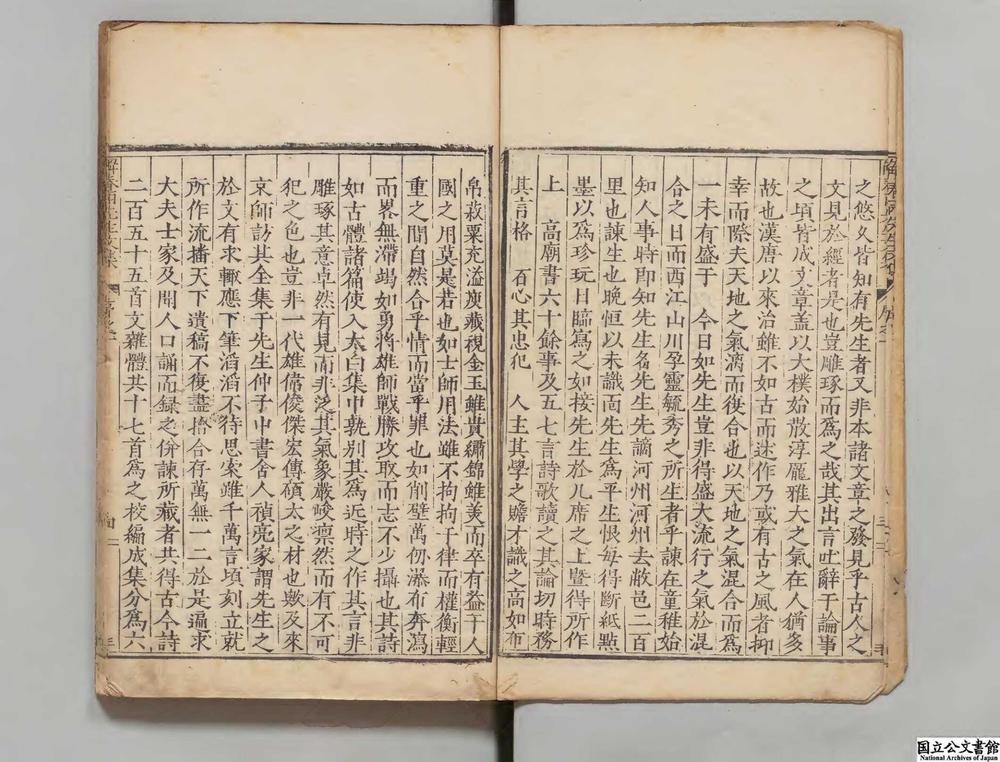 之悠久皆知有先生者又非本諸文章之發見乎古人之
文見於經者是也豈雕琢而為之哉其出言吐辭于論事
之頃皆成文章盖以大樸始散淳龐雅大之氣在人猶多
故也漢唐以來治雖不如古而述作乃或有古之風者抑
幸而際夫天地之氣漓而復合也以天地之氣混合而爲
一未有盛于　今日如先生豈非得盛大流行之氣於混
合之日而西江山川孕靈毓秀之所生者乎諫在童稚始
知人事時即知先生名先生先生謫河州河州去敝邑二百
里也諫生也晩恒以未識面先生爲平生恨每得斷紙點
墨以爲珍玩日臨寫之如接先生於几席之上曁得所作
上　高廟書六十餘事及五七言詩歌讀之其論切時務
其言格　石心其忠犯　人主其學之贍才識之高如布
帛菽粟充溢庾藏視金玉雖貴繡錦雖美而卒有益于人
國之用莫是若也如士師用法雖不拘拘于律而權衡輕
重之間自然合乎情而當乎罪也如削壁萬仞瀑布奔瀉
而畧無滯竭如勇將雄師戰勝攻取而志不少攝也其詩
如古體諸篇使入太白集中孰别其爲近時之作其言非
雕琢其意卓然有見而非泛其氣象嚴峻凛然而有不可
犯之色也豈非一代雄偉俊傑宏傳碩大之材也歟及來
京師訪其全集于先生仲子中書舍人禎亮家謂先生之
於文有求輙應下筆滔滔不待思案雖千萬言頃刻立就
所作流播天下遺稿不復盡存萬無一二於是遍求
大夫士家及閭人口誦而録之併諫所藏者共得古今詩
二百五十五首文雜體共十七首爲之校編成集分爲六
国立公文書館
National Archives of Japan